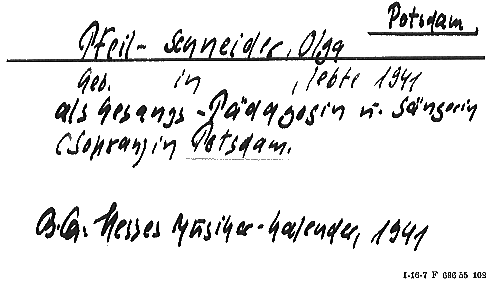 Potsdam,
Pfeil-Schneider, Olga
geb. in , lebte 1941
als Gesangs-Pädagogin u. Sängerin
(Sopran) in Potsdam.
Hesses Musiker-Kalender, 1941
I-16-7 F 686 55 102